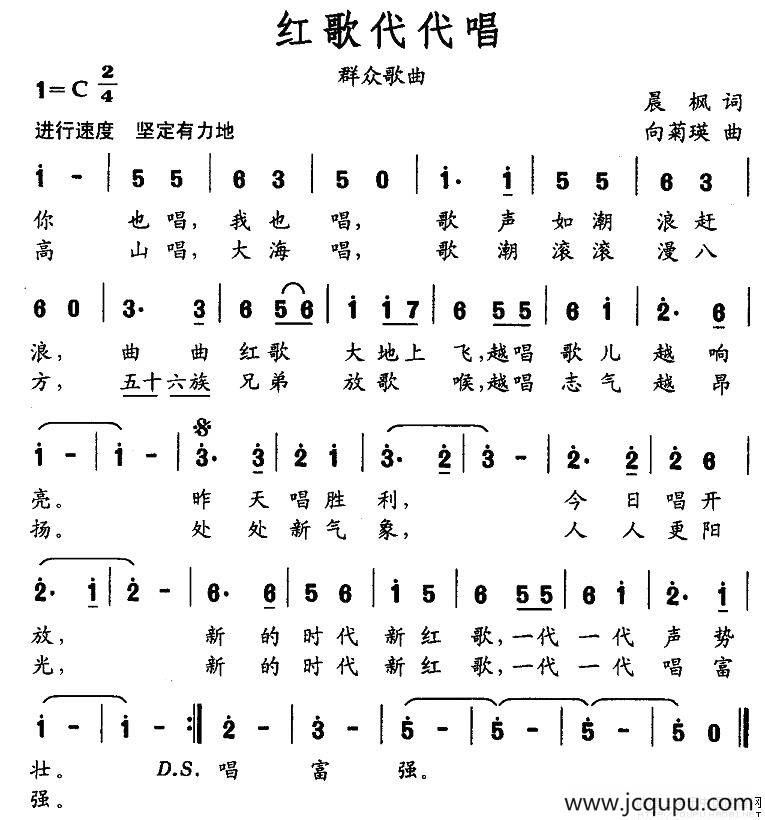 红歌代代唱
群众歌曲
1=C 2/4
晨枫 词
进行速度 坚定有力地
向菊瑛 曲
i - | 5 5 | 6 3 | 5 0 | i· i | 5 5 | 6 3 |
你 也唱, 我也 唱, 歌 声 如潮 浪赶
高 山唱, 大海 唱, 歌 潮 滚滚 漫八
6 0 | 3· 3 | 6 5 6 | i i 7 | 6 5 5 | 6 i | 2̇· 6 |
浪, 曲 曲 红歌 大地上 飞,越唱 歌儿 越 响
方, 五十六族 兄弟 放歌 喉,越唱 志气 越 昂
i - | i - | 3̇· 3̇ | 2̇ i | 3̇· 2̇ | 3̇ - | 2̇· 2̇ | 2̇ 6 |
亮。 昨 天 唱胜 利, 今 日 唱开
扬。 处 处 新气 象, 人 人 更阳
2̇· i | 2̇ - | 6· 6 | 5 6 | i 5 | 6 5 5 | 6 i | 2̇· i |
放, 新 的 时代 新红 歌,一代 一代 声 势
光, 新 的 时代 新红 歌,一代 一代 唱 富
i - | i - :| 2̇ - | 3̇ - | 5̇ - | 5̇ - | 5̇ - | 5̇ 0 |
壮。 D.S. 唱 富 强。
强。
www.jcqupu.com